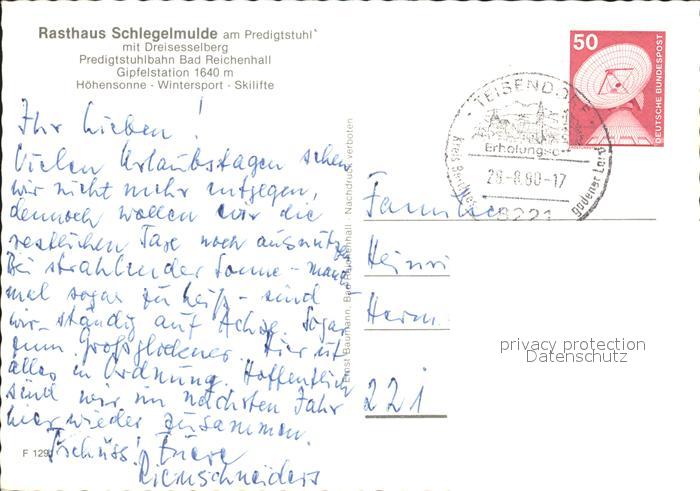 Rasthaus Schlegelmulde am Predigtstuhl
mit Dreisesselberg
Predigtstuhlbahn Bad Reichenhall
Gipfelstation 1640 m
Höhensonne - Wintersport - Skilifte
Ihr Lieben!
Vielen Urlaubstagen sehen
wir nicht mehr entgegen,
dennoch wollen wir die
restlichen Tage noch ausnutzen
Bei strahlender Sonne - manch
mal sogar zu heiß - sind
wir ständig auf Achse. Sogar
zum Großglockner. Hier ist
alles in Ordnung. Hoffentlich
sind wir im nächsten Jahr
hier wieder zusammen.
Tschüss! Euere
Riemschneiders
F 129
Ernst Baumann, Bad Reichenhall - Nachdruck verboten
50
DEUTSCHE BUNDESPOST
TEISENDORF
Erholungso
-8.80-17
8221
Familie
Heinri
Herm
221
privacy protection
Datenschutz